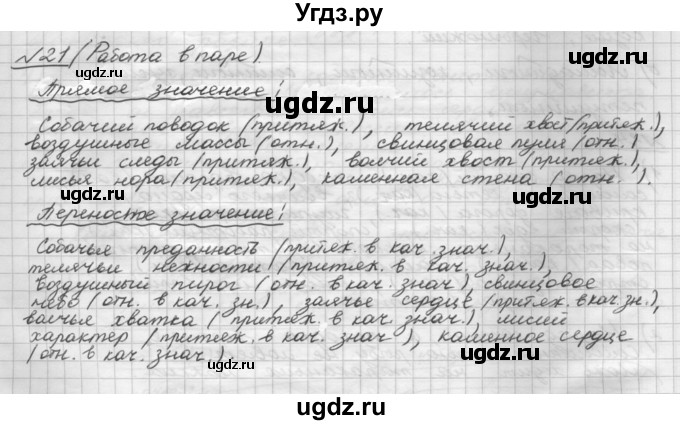 Угдз.ру
№21 (Работа в паре).
ugdz.ru
Прямое значение!
ugdz.ru
Собачий поводок (притяж.), телячий хвост (притяж.),
воздушные массы (отн.), свинцовая пуля (отн.)
ugdz.ru ugdz.ru
заячьи следы (притяж.), волчий хвост (притяж.),
лисья нора (притяж.), каменная стена (отн.).
Переносное значение!
ugdz.ru
Собачья преданность (притяж. в кач. знач.),
телячьи нежности (притяж. в кач. знач.),
воздушный пирог (отн. в кач. знач.), свинцовое
небо (отн. в кач. зн.), заячье сердце (притяж. в кач. зн.),
ugdz.ru ugdz.ru
волчья хватка (притяж. в кач. знач.), лисий
характер (притяж. в кач. знач.), каменное сердце
(отн. в кач. знач.).
ugdz.ru
ugdz.ru